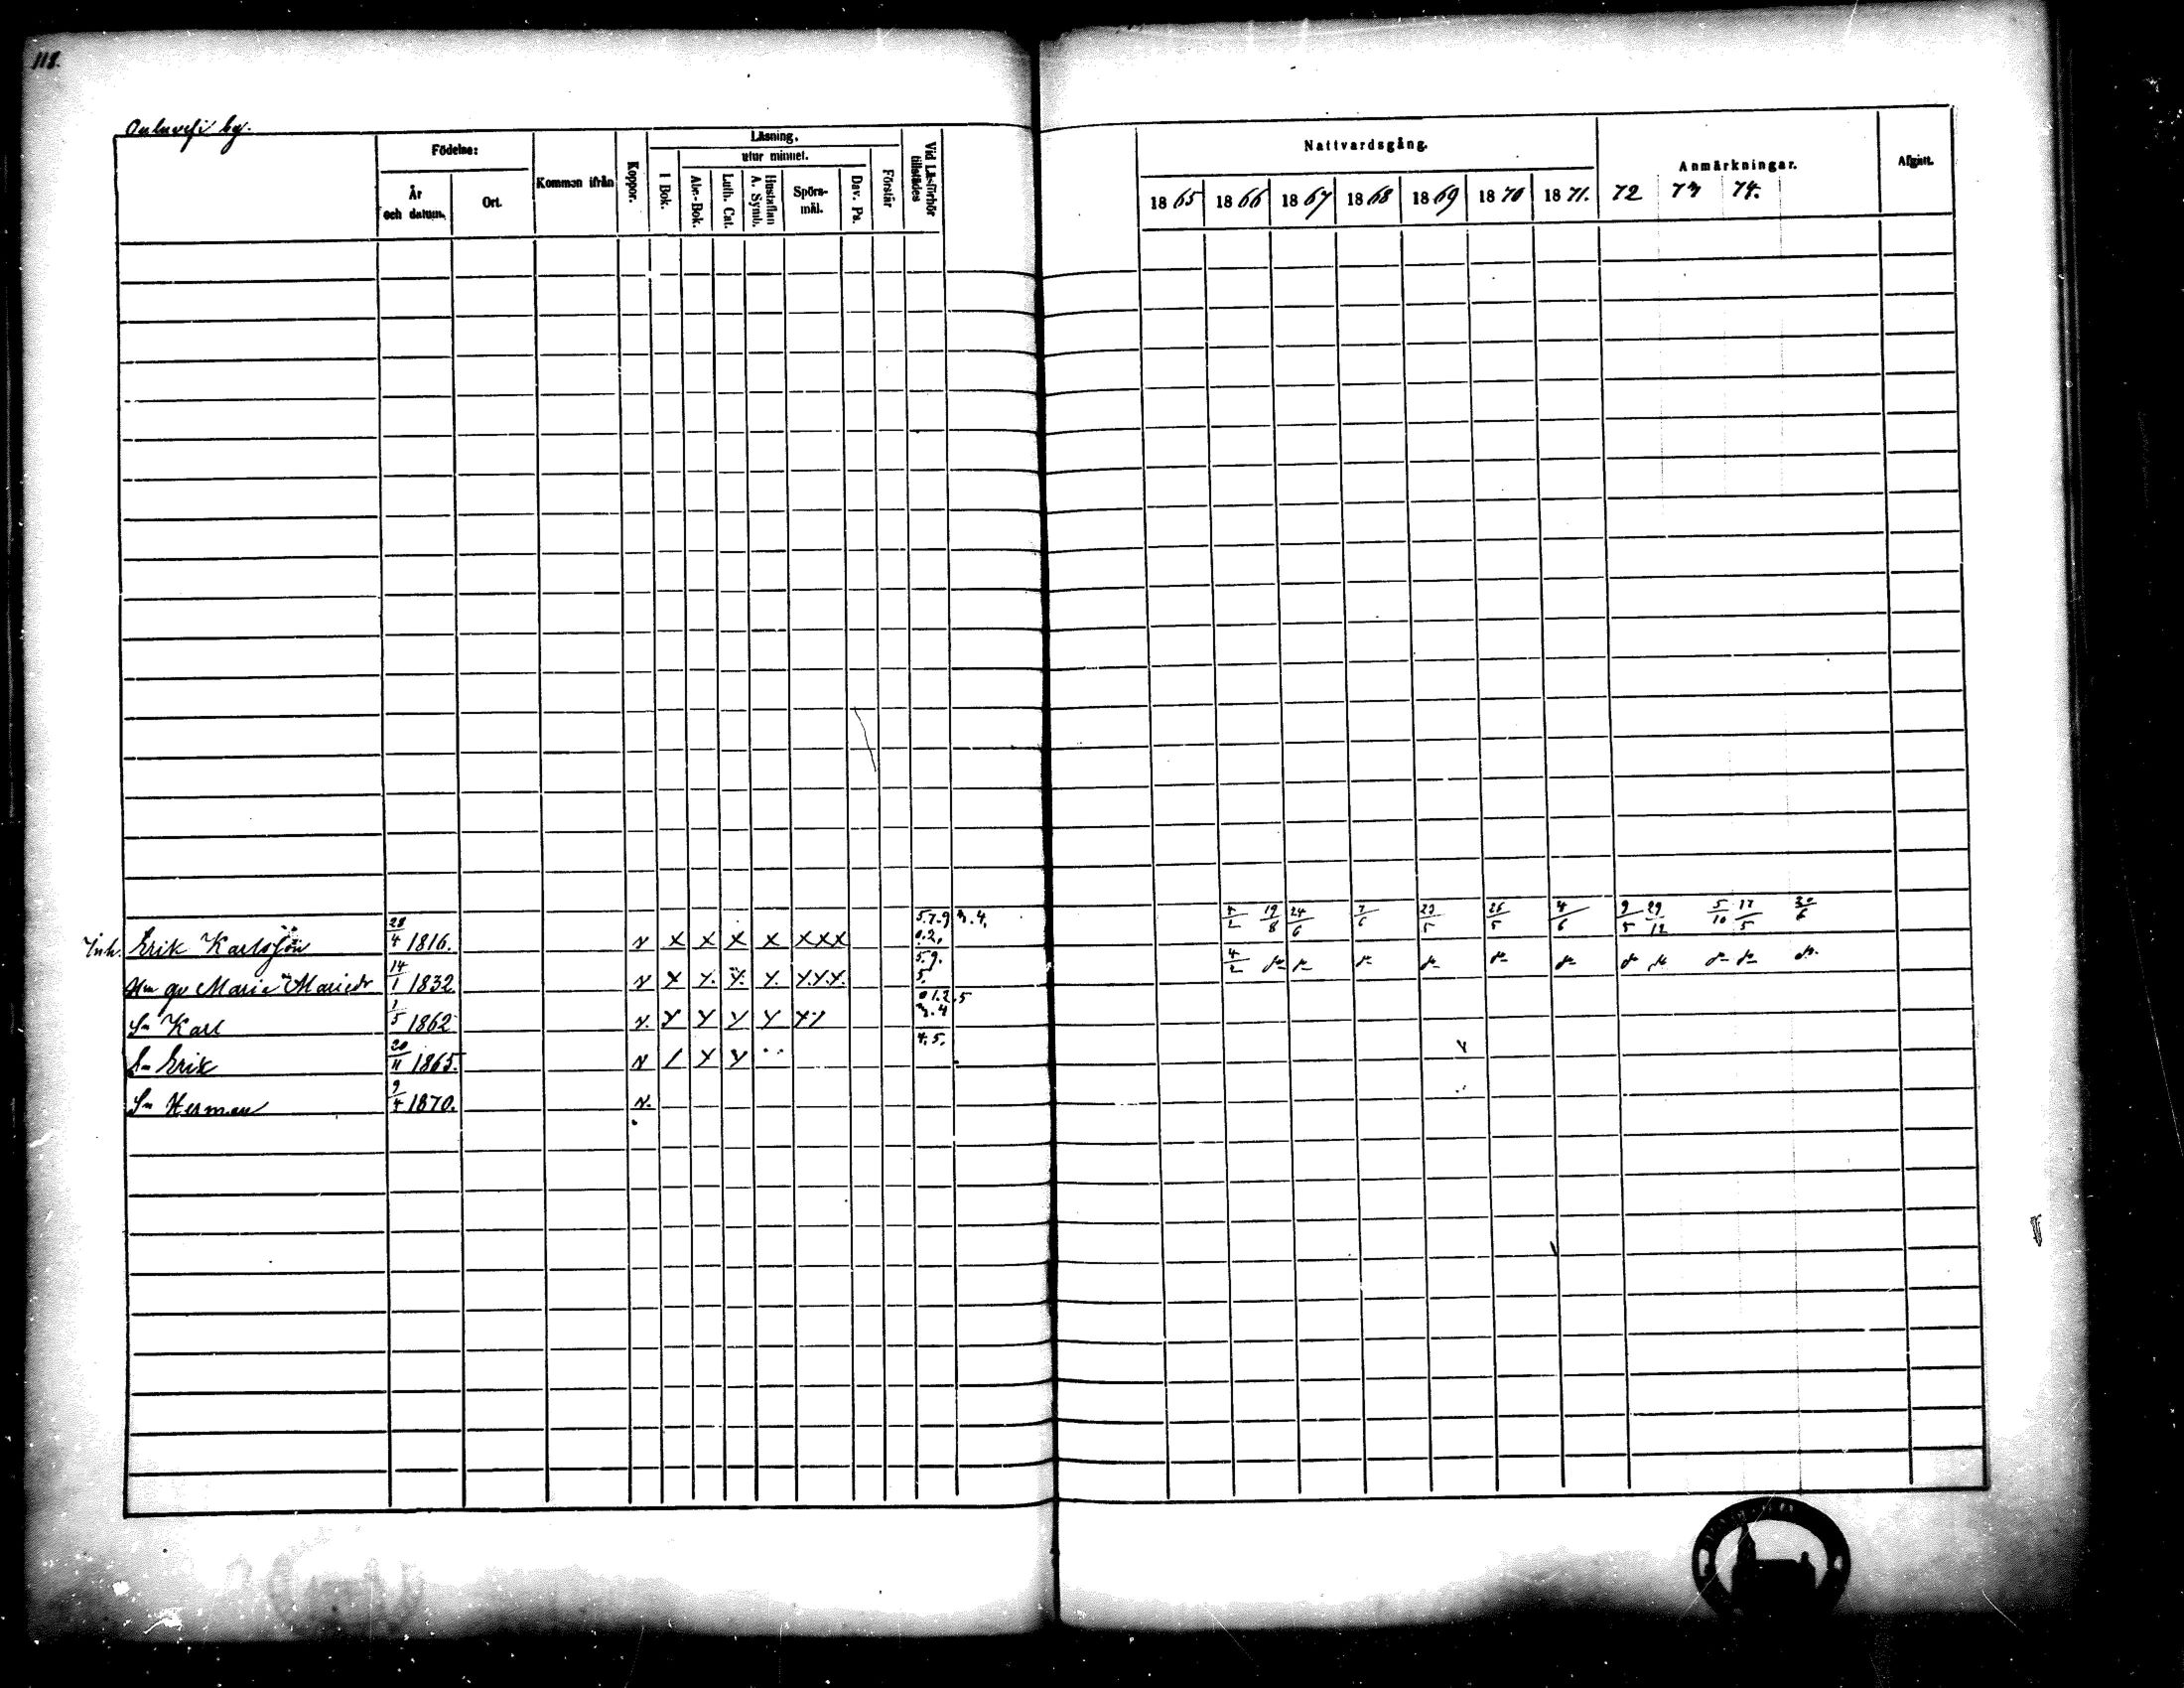 118.
by.
Födelse:
År och datum.
Ort.
Kommen ifrån
Koppor.
Läsning.
I Bok.
utur minnet.
Abc-Bok.
Luth. Cat.
Hustaflan A. Symb.
Spörs-mål.
Dav. Ps.
Förstår
Vid Läsförhör tillstädes
Nattvardsgång.
1865 1866 1867 1868 1869 1870 1871.
Anmärkningar.
72 73 74.
Afgått.
Inh. Erik Karlsson 28/4 1816. v X X X X XXX 5.7.9 3.4. 0.2. 4/2 19/8 24/6 7/6 23/5 26/5 4/6 9/5 29/12 5/10 17/5 30/6
Maria 14/1 1832 v X Y. Y. Y. Y.Y.Y. 5.9. 5. 4/2
Sn Karl 1/5 1862 v. Y Y Y Y 0 1.2.5 3.4
Sn Erik 20/11 1865. v / Y Y 4.5.
Sn Herman 9/4 1870. v.